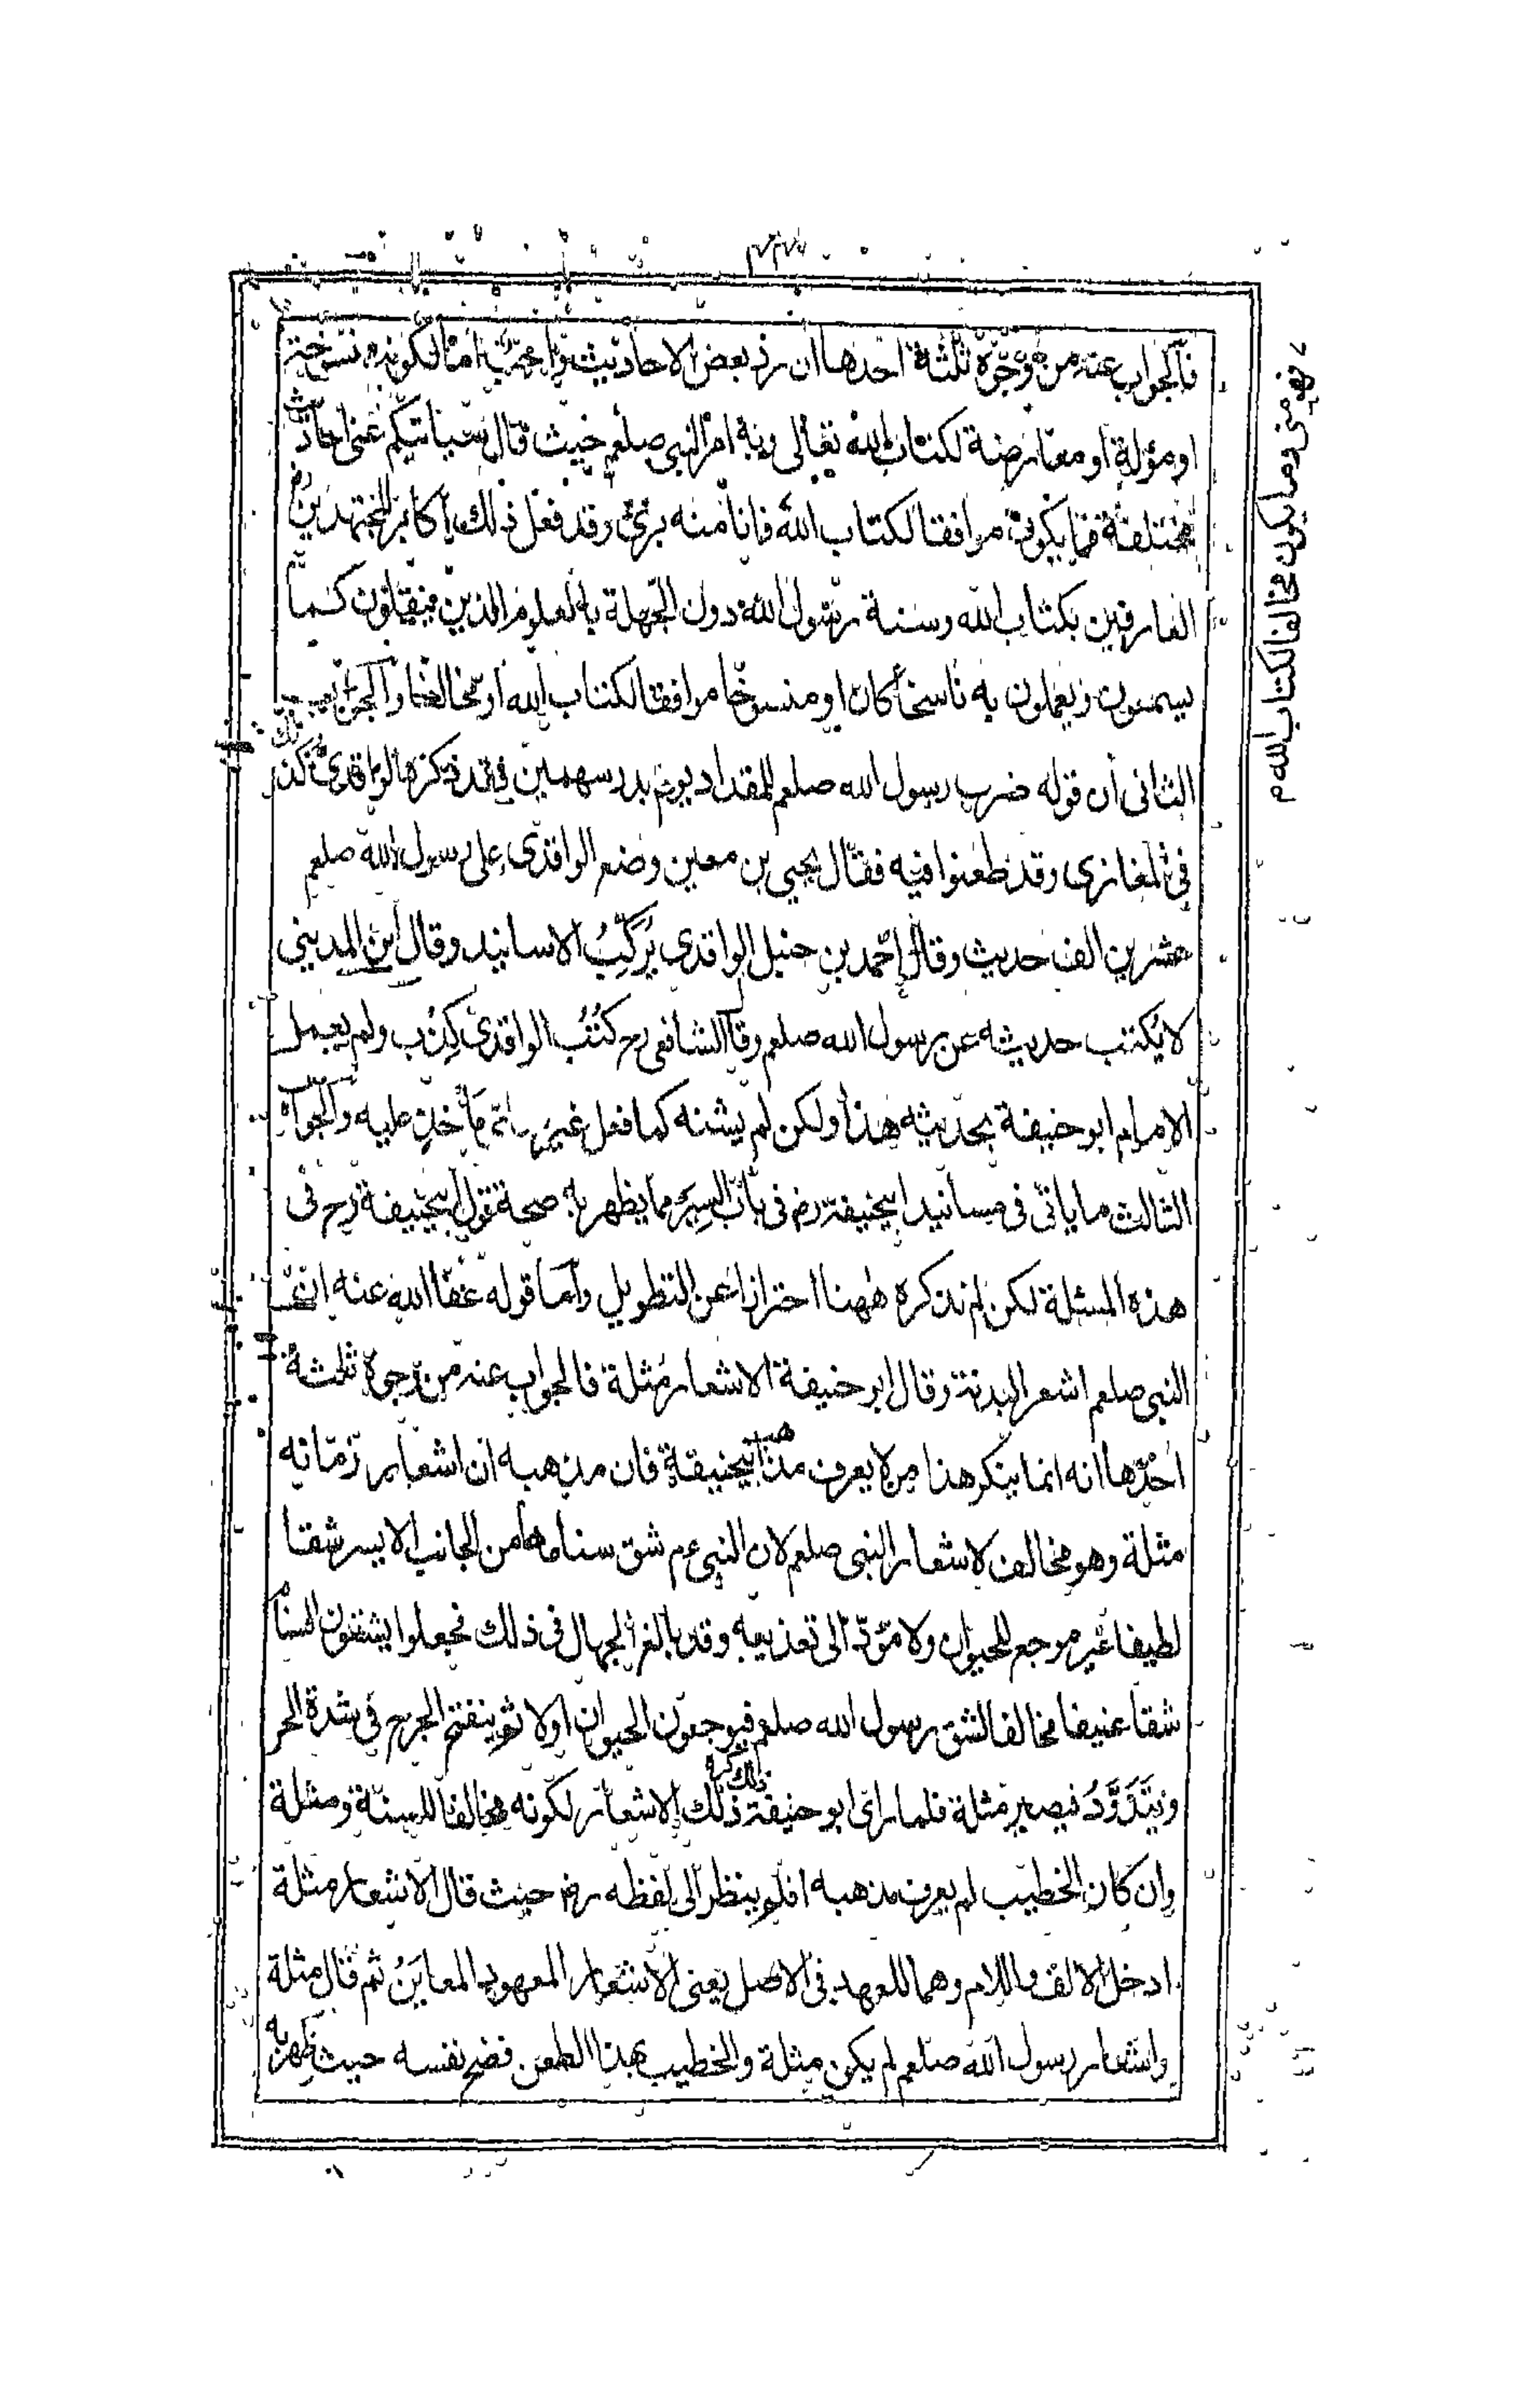 فالجواب عنه من وجوه ثلثة احدها ان رد بعض الاحاديث واجب اما لكونه منسوخة
او مؤلة او معارضة لكتاب الله تعالى وبه امر النبى صلعم حيث قال سيأتيكم عنى احاديث
مختلفة فما يكون موافقا لكتاب الله فانا منه برئ وقد فعل ذلك اكابر المجتهدين
العارفين بكتاب الله وسنة رسول الله دون الجهلة بالعلوم الذين ينقلون كما
يسمعون ويعملون به ناسخا كان او منسوخا موافقا لكتاب الله او مخالفا والجواب
الثانى ان قوله ضرب رسول الله صلعم للمقداد يوم بدر سهمين فقد ذكره الواقدى كذلك
فى المغازى وقد طعنوا فيه فقال يحيى بن معين وضع الواقدى على رسول الله صلعم
عشرين الف حديث وقال احمد بن حنبل الواقدى يُرَكِّبُ الاسانيد وقال ابن المدينى
لا يُكتب حديثه عن رسول الله صلعم وقال الشافعى رح كُتُبُ الواقدى كِذْب ولم يعمل
الامام ابو حنيفة بحديثه هذا ولكن لم يشنه كما فعل غيره ثم ما خذ عليه والجواب
الثالث ما ياتى فى مسانيد ابيحنيفة رض فى باب السِيَر مما يظهر به صحة قول ابيحنيفة رح فى
هذه المسئلة لكن لم نذكره ههنا احترازا عن التطويل واما قوله عفا الله عنه ان
النبى صلعم اشعر البدنة وقال ابو حنيفة الاشعار مُثلة فالجواب عنه من وجوه ثلثة
احدها انه انما ينكر هذا من لا يعرف مذهب ابيحنيفة فان مذهبه ان اشعار زمانه
مثلة وهو مخالف لاشعار النبى صلعم لان النبى عم شق سنامها من الجانب الايسر شقا
لطيفا غير موجع للحيوان ولا مؤد الى تعذيبه وقد بالغ الجهال فى ذلك فجعلوا يشقون السنام
شقا عنيفا مخالفا لشق رسول الله صلعم فيوجعون الحيوان اولا ثم ينفتح الجرح فى شدة الحر
ويَتَدَوَّدُ فيصير مثلة فلما راى ابو حنيفة ذلك كره ذلك الاشعار لكونه مخالفا للسنة ومثلة
وان كان الخطيب لم يعرف مذهبه افلم ينظر الى لفظه رض حيث قال الاشعار مثلة
ادخل الالف واللام وهما للعهد فى الاصل يعنى الاشعار المعهود المعايَنُ ثم قال مثلة
واشعار رسول الله صلعم لم يكن مثلة والخطيب بهذا الطعن فضح نفسه حيث ظهر به
فهو منى وما يكون مخالفا لكتاب الله م